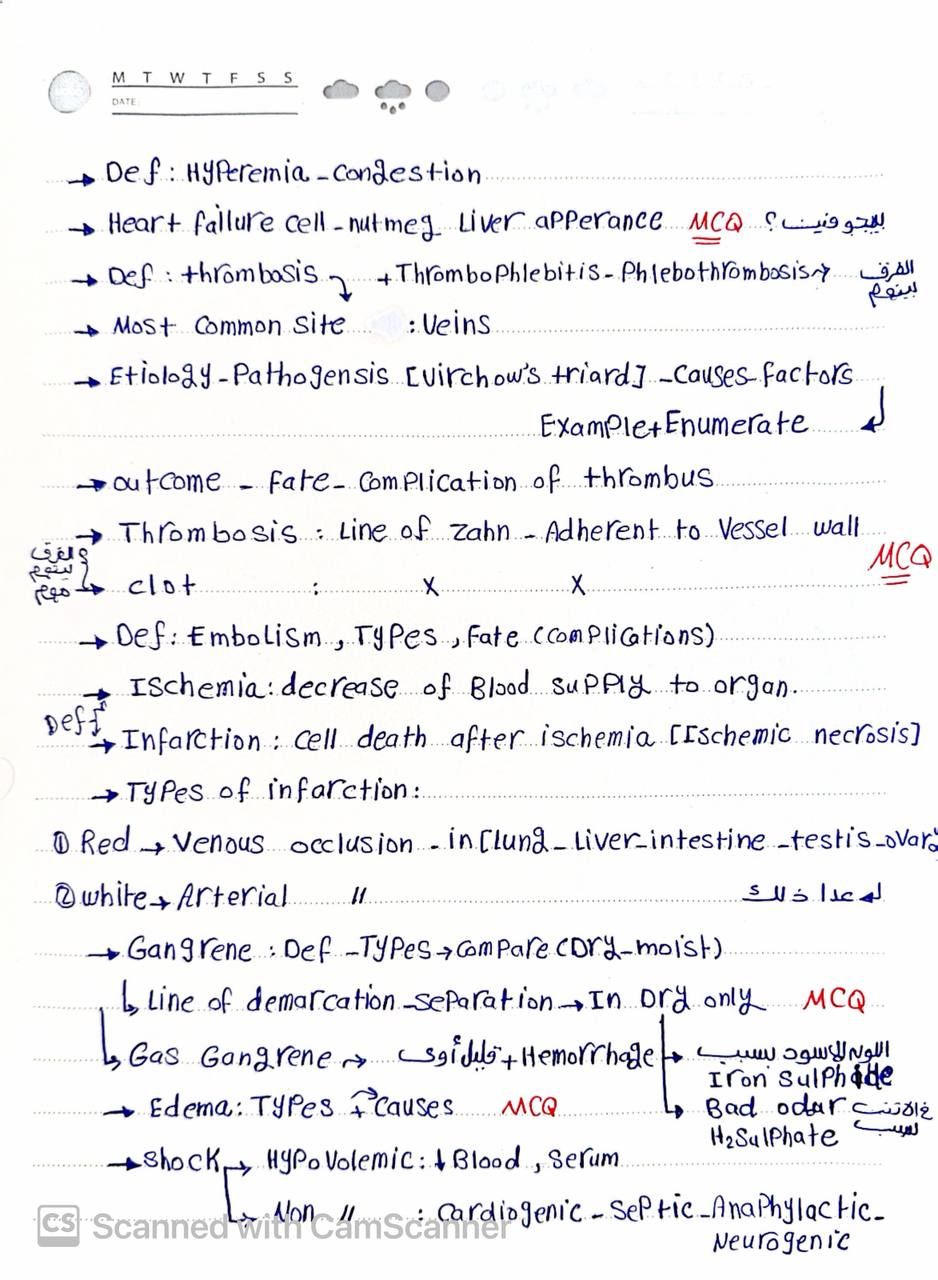 M T W T F S S
DATE:
→ Def : Hyperemia - congestion
→ Heart failure cell - nutmeg Liver apperance MCQ بييجو فين ؟
→ Def : thrombosis + ThromboPhlebitis - Phlebothrombosis → الفرق بينهم
→ Most Common Site : Veins
→ Etiology - Pathogensis [Virchow's triard] - Causes factors
Example + Enumerate
→ outcome - Fate - Complication of thrombus
→ Thrombosis : Line of Zahn - Adherent to Vessel wall
MCQ
الفرق بينهم مهم
→ clot : X X
→ Def : Embolism , Types , Fate (complications)
→ Ischemia : decrease of Blood supply to organ.
Deff
→ Infarction : cell death after ischemia [Ischemic necrosis]
→ Types of infarction :
① Red → Venous occlusion - in [lung - Liver - intestine - testis - ovary
② white → Arterial " ما عدا ذلك
→ Gangrene : Def - Types → compare (Dry - moist)
↳ Line of demarcation - separation → In Dry only MCQ
↳ Gas Gangrene → + Hemorrhage → اللون الاسود بسبب
Iron Sulphide
→ Edema : Types + Causes MCQ
↳ Bad odur بسبب
H₂Sulphate
→ Shock → Hypovolemic : ↓ Blood , Serum
↳ Non " : Cardiogenic - Septic - Anaphylactic -
Neurogenic
CS Scanned with CamScanner